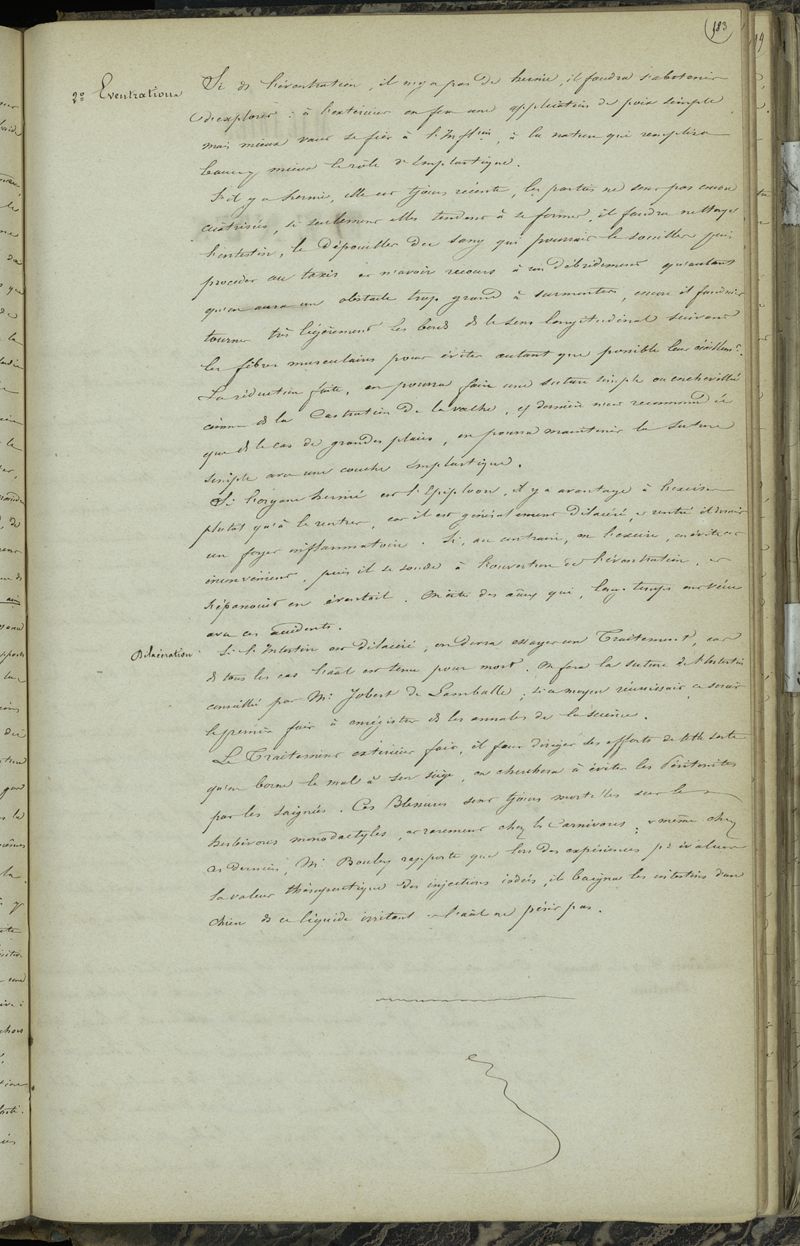 183
2º Eventration
Si ds l'éventration, il n'y a pas de hernie, il faudra s'abstenir
d'explorer : à l'extérieur on fera une application de poix simple
mais mieux vaut se fier à l'Infl^on, à la nature qui remplira
beauc^p mieux le rôle d'emplastique.
S'il y a hernie, elle est tjours récente, les parties ne sont pas encore
cicatrisées, si seulement elles tendent à se former, il faudra nettoyer
l'intestin, le dépouiller du sang qui pourrait le souiller puis
procéder au taxis et n'avoir recours à un débridement qu'autant
qu'on aura un obstacle trop grand à surmonter, encore il faudrait
tourner très légèrement les bords ds le sens longitudinal suivant
les fibres musculaires pour éviter autant que possible leur
La réduction faite, on pourra faire une suture simple ou enchevillée
comme ds la Castration de la vache, cette dernière n'est recommandée
que ds le cas de grandes plaies, on pourra maintenir la suture
simple avec une couche emplastique.
Si l'organe hernié est l'Epiploon, il y a avantage à l'exciser
plutôt qu'à le rentrer, car il est généralement dilacéré, et rentré il devient
un foyer inflammatoire. Si, au contraire, on l'excise, on évite cet
inconvénient, puis il se soude à l'ouverture de l'éventration, et
s'épanouit en éventail. Mˢ des anˣ qui, long-temps ont vécu
avec ces accidents.
Dilacération
Si l'Intestin est dilacéré, on devra essayer un Traitement, car
ds tous les cas l'anˡ est tenu pour mort. On fera la suture de l'Intestin
conseillée par Mr Jobert de Lamballe ; si ce moyen réussissait, ce serait
le premier fait à enregistrer ds les annales de la science.
Le Traitement extérieur fait, il faut diriger ses efforts de telle sorte
qu'on borne le mal à son siège, on cherchera à éviter les Péritonites
par les saignées. Ces Blessures sont tjours mortelles sur les
herbivores monodactyles, et rarement chez les Carnivores ; & même chez
ces derniers, Mr Bouley rapporte que lors des expériences pr évaluer
la valeur thérapeutique des injections iodées, il baigna les intestins d'un
chien ds ce liquide irritant & l'anˡ ne périt pas.